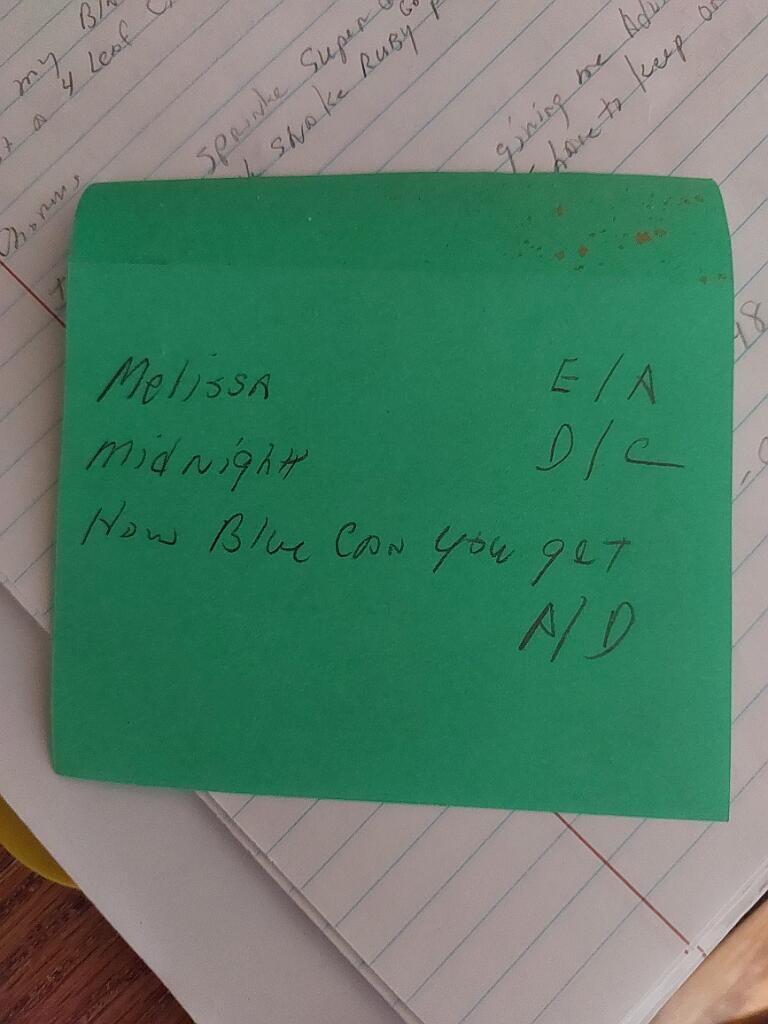 my
a 4 Leaf
Sprinkle Super
Snake Ruby
giving me
have to keep
Melissa E/A
Midnight D/C
How Blue Can you get
A/D